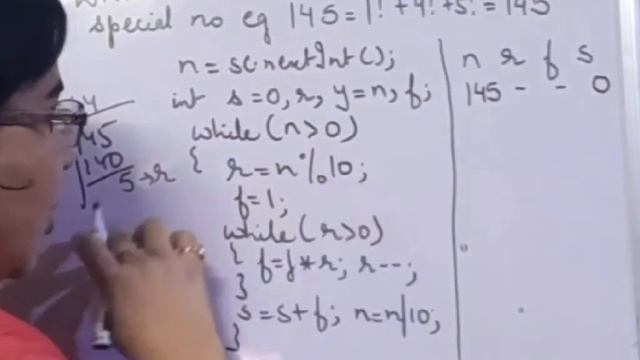 special no eg 145 = 1! + 4! + 5! = 145
n = sc.nextInt();
int s=0, r, y=n, f;
while (n>0)
{ r = n%10;
f=1;
while (r>0)
{ f=f*r; r--;
}
s=s+f; n=n/10;
}
14
145
140
5→r
n r f s
145 - - 0